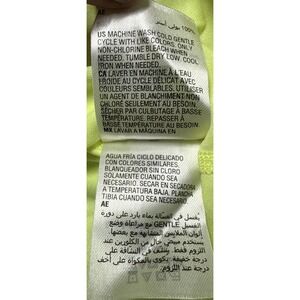 AE
100% بولي أستر
US MACHINE WASH COLD GENTLE
CYCLE WITH LIKE COLORS. ONLY
NON-CHLORINE BLEACH WHEN
NEEDED. TUMBLE DRY LOW. COOL
IRON WHEN NEEDED.
CA LAVER EN MACHINE À L'EAU
FROIDE AU CYCLE DÉLICAT AVEC
COULEURS SEMBLABLES. UTILISER
UN AGENT DE BLANCHIMENT NON
CHLORÉ SEULEMENT AU BESOIN.
SÉCHER PAR CULBUTAGE À BASSE
TEMPÉRATURE. REPASSER À
BASSE TEMPÉRATURE AU BESOIN.
MX LAVAR A MÁQUINA EN
AGUA FRÍA CICLO DELICADO
CON COLORES SIMILARES.
BLANQUEADOR SIN CLORO
SOLAMENTE CUANDO SEA
NECESARIO. SECAR EN SECADORA
A TEMPERATURA BAJA. PLANCHA
TIBIA CUANDO SEA NECESARIO.
AE
يُغسل في الغسالة بماء بارد على دورة
الغسيل GENTLE مع مراعاة وضع
ألوان الملابس المتشابهة مع بعضها
يستخدم مبيض خال من الكلورين عند
اللزوم فقط. ينشف في النشافة على
درجة خفيفة. يكوى بالمكواة على أخف
درجة عند اللزوم.